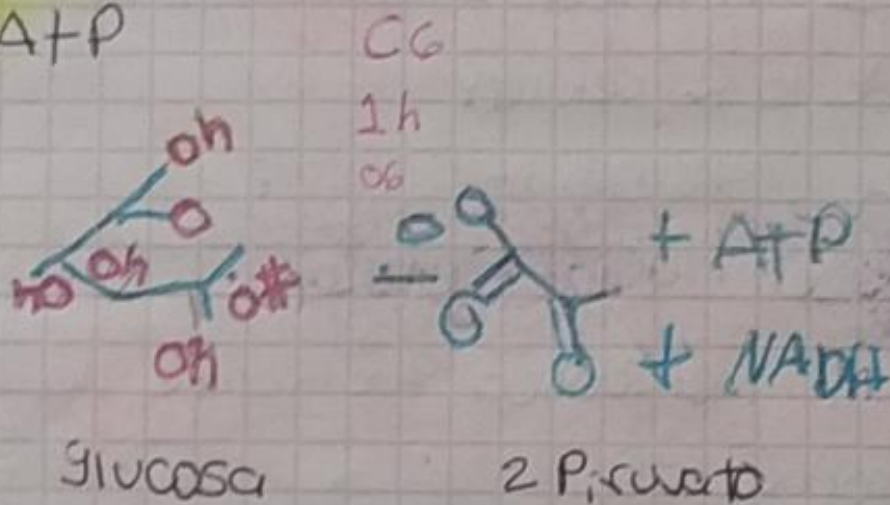 A+P
C6
1h
06
oh
O
oh
HO
O*
Oh
O
O
O
O
+ A+P
+ NADH
glucosa
2 Piruvato